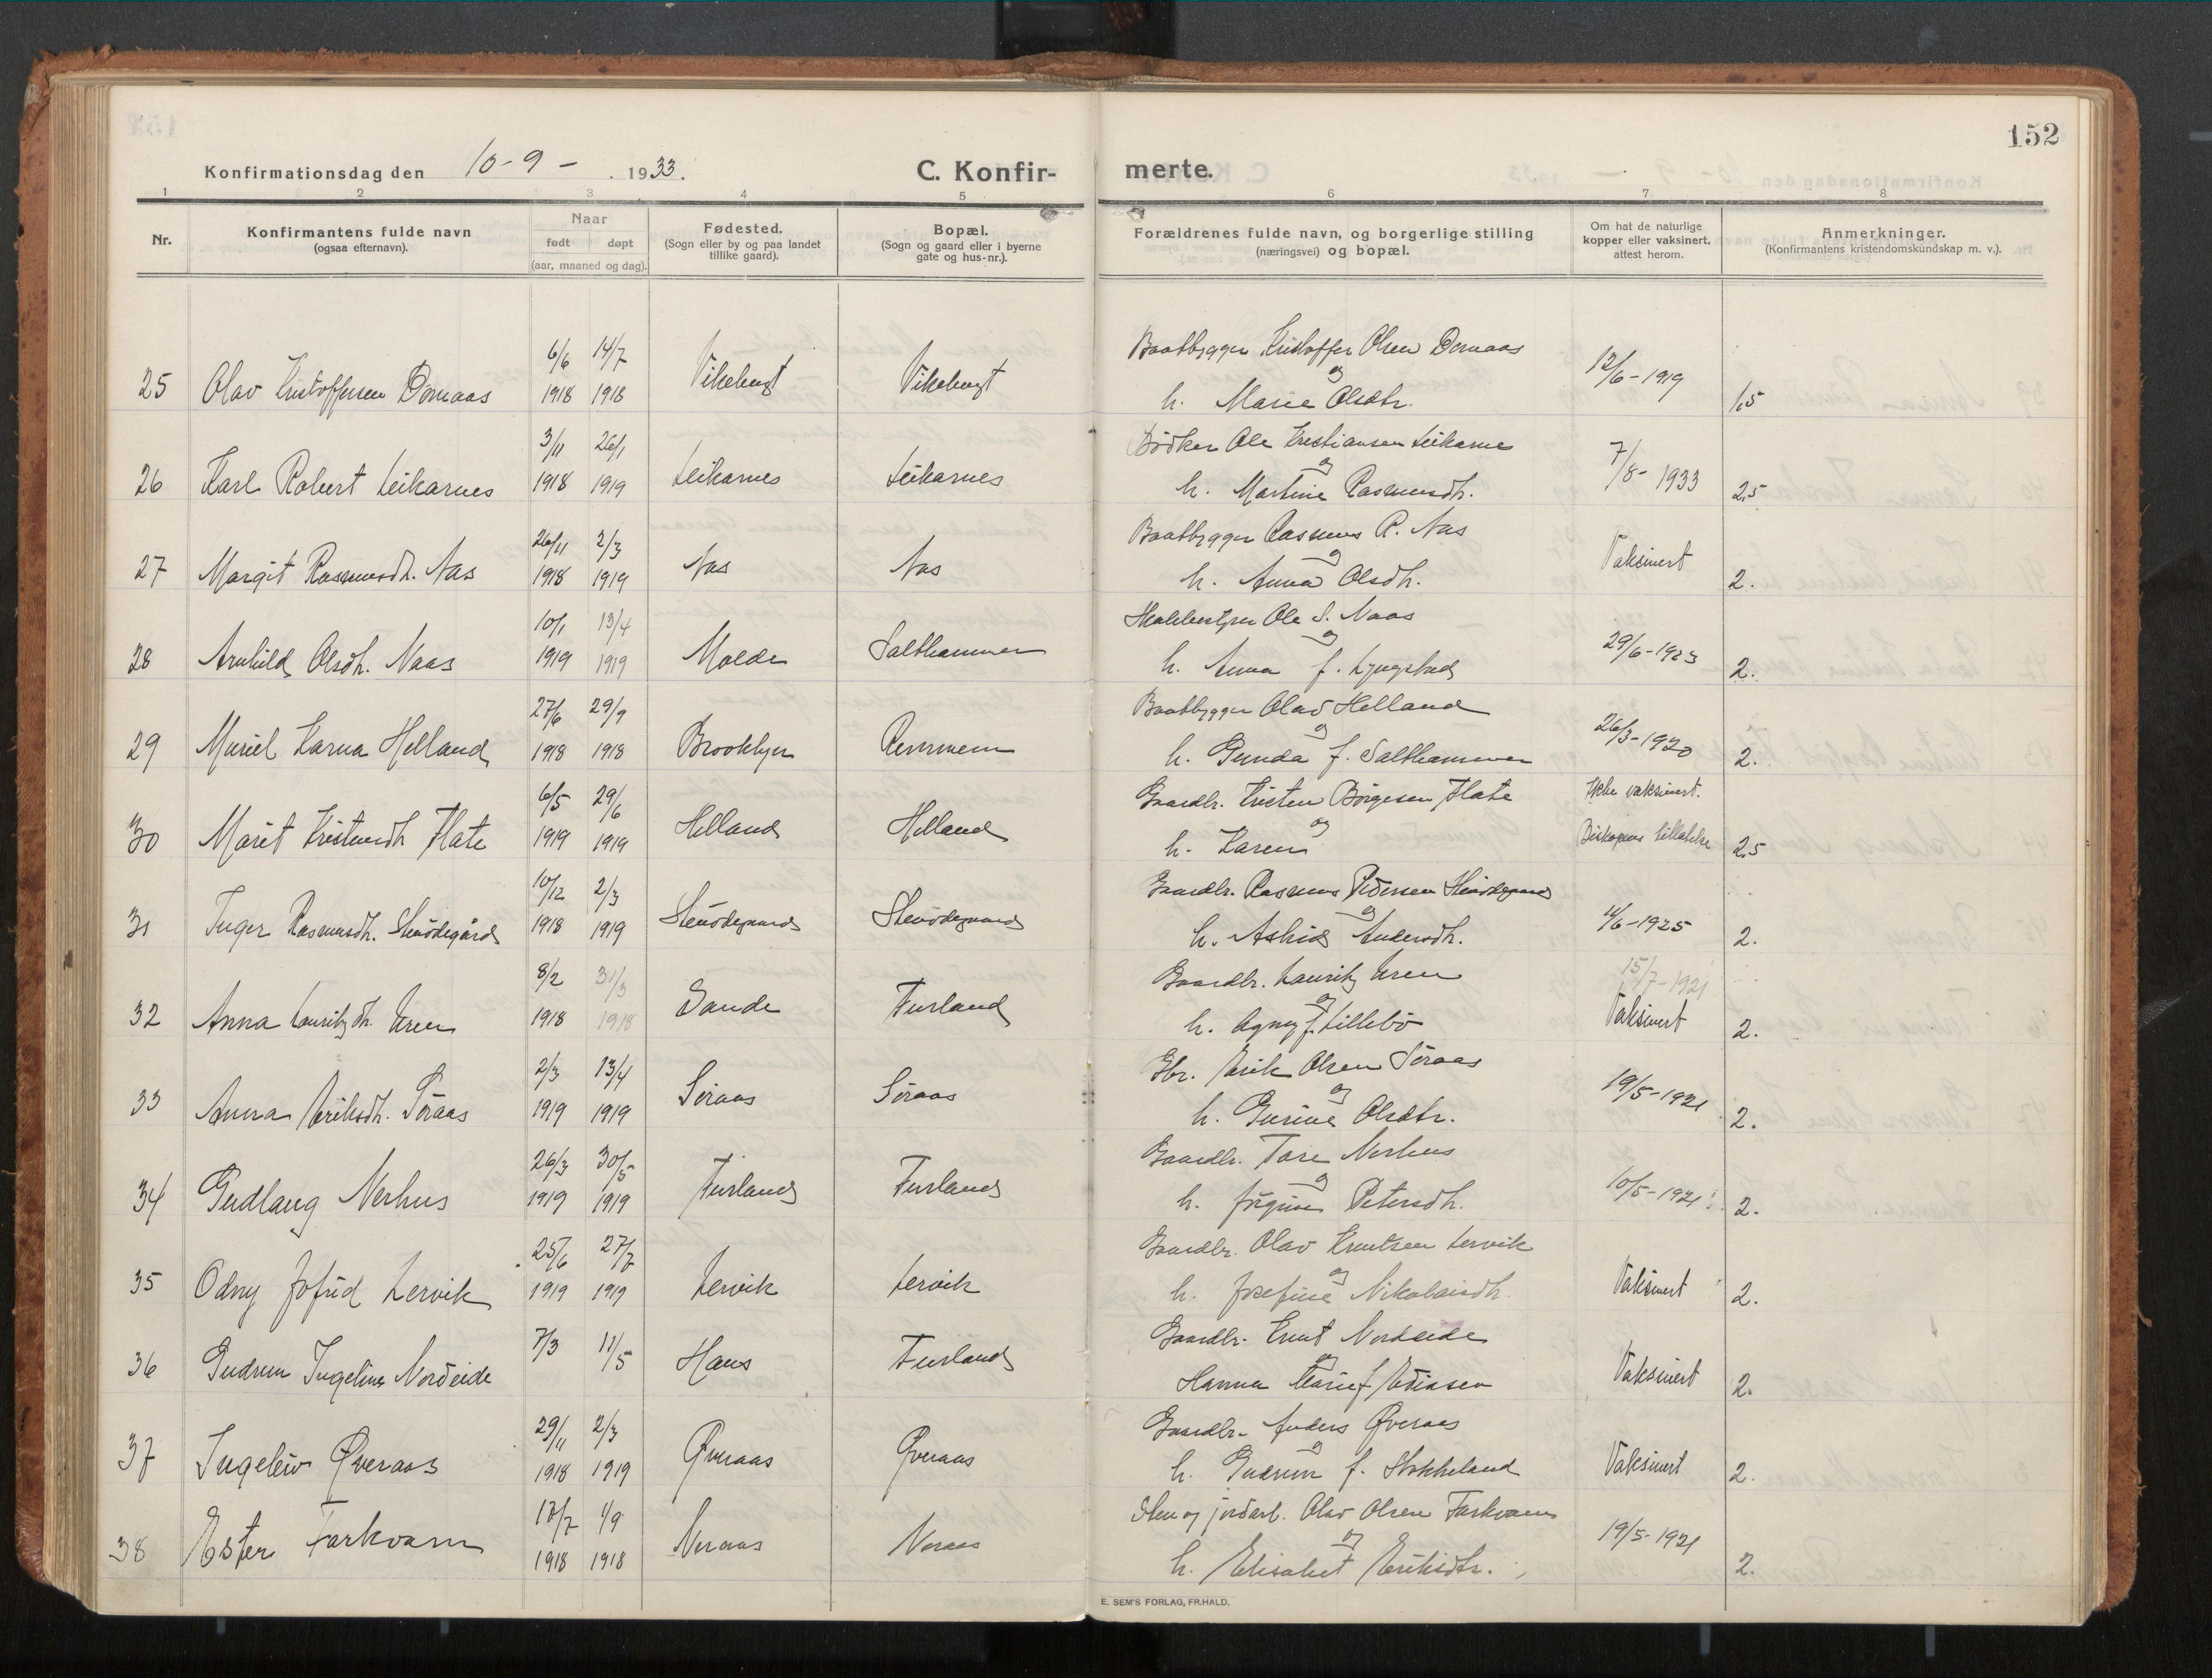 152
Konfirmationsdag den 10-9- 1933. C. Konfir- merte.
1 2 3 4 5 6 7 8
Nr. Konfirmantens fulde navn (ogsaa efternavn). Naar født døpt (aar, maaned og dag). Fødested. (Sogn eller by og paa landet tillike gaard). Bopæl. (Sogn og gaard eller i byerne gate og hus-nr.). Forældrenes fulde navn, og borgerlige stilling (næringsvei) og bopæl. Om hat de naturlige kopper eller vaksinert, attest herom. Anmerkninger. (Konfirmantens kristendomskundskap m. v.).
6/6 14/7 Baatbygger Kristoffer Olsen Domaas
25 Olav Kristoffersen Domaas 1918 1918 Vikebugt Vikebugt og h. Marie Olsdtr. 12/6-1919 1,5
3/11 26/1 Bödker Ole Kristiansen Leikarnes
26 Karl Robert Leikarnes 1918 1919 Leikarnes Leikarnes og h. Martine Rasmusdtr. 7/8-1933 2,5
26/11 2/3 Baatbygger Rasmus R. Nas
27 Margit Rasmusdtr. Nas 1918 1919 Nas Nas og h. Anna Olsdtr. Vaksinert 2.
10/1 13/4 Ole S. Naas
28 Arnhild Olsdtr. Naas 1919 1919 Molde Salthammer og h. Anna f. Lyngstad 29/6-1923 2.
27/6 29/9 Baatbygger Olav Helland
29 Muriel Karna Helland 1918 1918 Brooklyn Remmem og h. Gunda f. Salthammer 26/3-1920 2.
6/5 29/6 Gaardbr. Kristen Börgesen Flate Ikke vaksinert.
30 Marit Kristendtr Flate 1919 1919 Helland Helland og h. Karen Biskopens tillatelse 2,5
10/12 2/3 Gaardbr. Rasmus Pedersen Stenödegaard
31 Inger Rasmusdtr. Stenödegård 1918 1919 Stenödegaard Stenödegaard og h. Astrid Andersdtr. 4/6-1925 2.
8/2 31/3 Gaardbr. Lauritz Uren 15/7-1921
32 Anna Lauritzdtr. Uren 1918 1918 Sande Furland og h. Agnes f. Lillebö Vaksinert 2.
2/3 13/4 Gbr. Erik Olsen Söraas
33 Anna Eriksdtr. Söraas 1919 1919 Söraas Söraas og h. Gurine Olsdtr. 19/5-1921 2.
26/3 30/5 Gaardbr. Tore Nerhus
34 Gudlaug Nerhus 1919 1919 Furland Furland og h. Jörgine Petersdtr. 10/5-1921 2.
25/6 27/7 Gaardbr. Olav Knutsen Lervik
35 Odny Jofrid Lervik 1919 1919 Lervik Lervik og h. Josefine Nikolaisdtr. Vaksinert 2.
7/3 11/5 Gaardbr. Knut Nordeide
36 Gudrun Ingeline Nordeide Hans Furland og Hanna Marie f. Vaksinert 2.
29/11 2/3 Gaardbr. Anders Øveraas
37 Ingeleiv Øveraas 1918 1919 Øveraas Øveraas og h. Gudrun f. Stokkeland Vaksinert 2.
17/7 1/9 Sten og jordarb. Olav Olsen Farkvam
38 Ester Farkvam 1918 1918 Neraas Neraas og h. Elisabet Eriksdtr. 19/5-1921 2.
E. SEM'S FORLAG, FR.HALD.